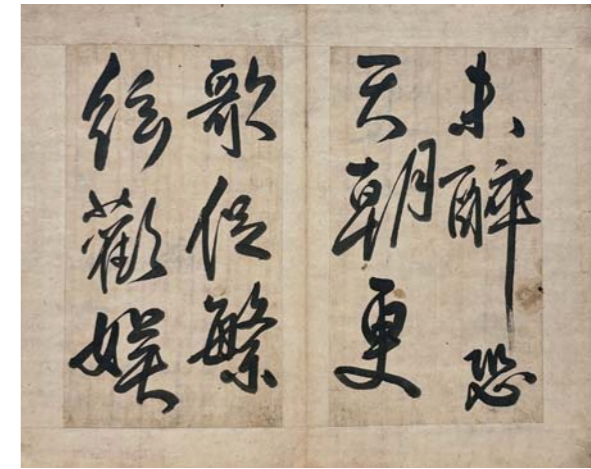 未醉恐
天朝更
歌促繁
絃歡娛